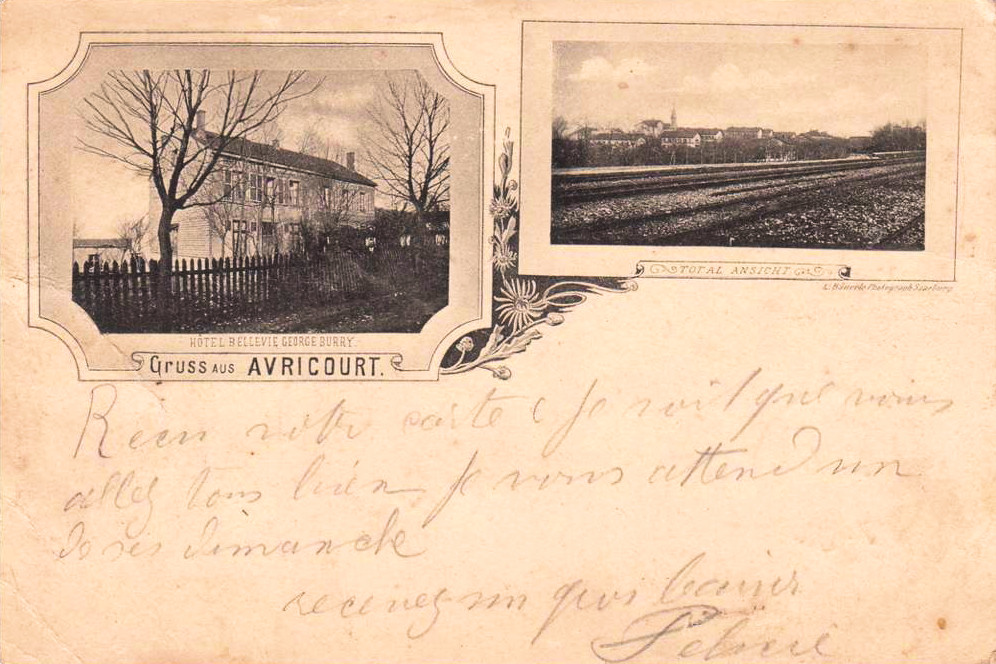 HÔTEL BELLEVIE GEORGE BURRY.
GRUSS AUS AVRICOURT.
TOTAL ANSICHT
Photograph Saarburg.
Recu votre carte je voit que vous
allez tous bien, je vous attend un
de ses dimanche
recevez un gros baiser